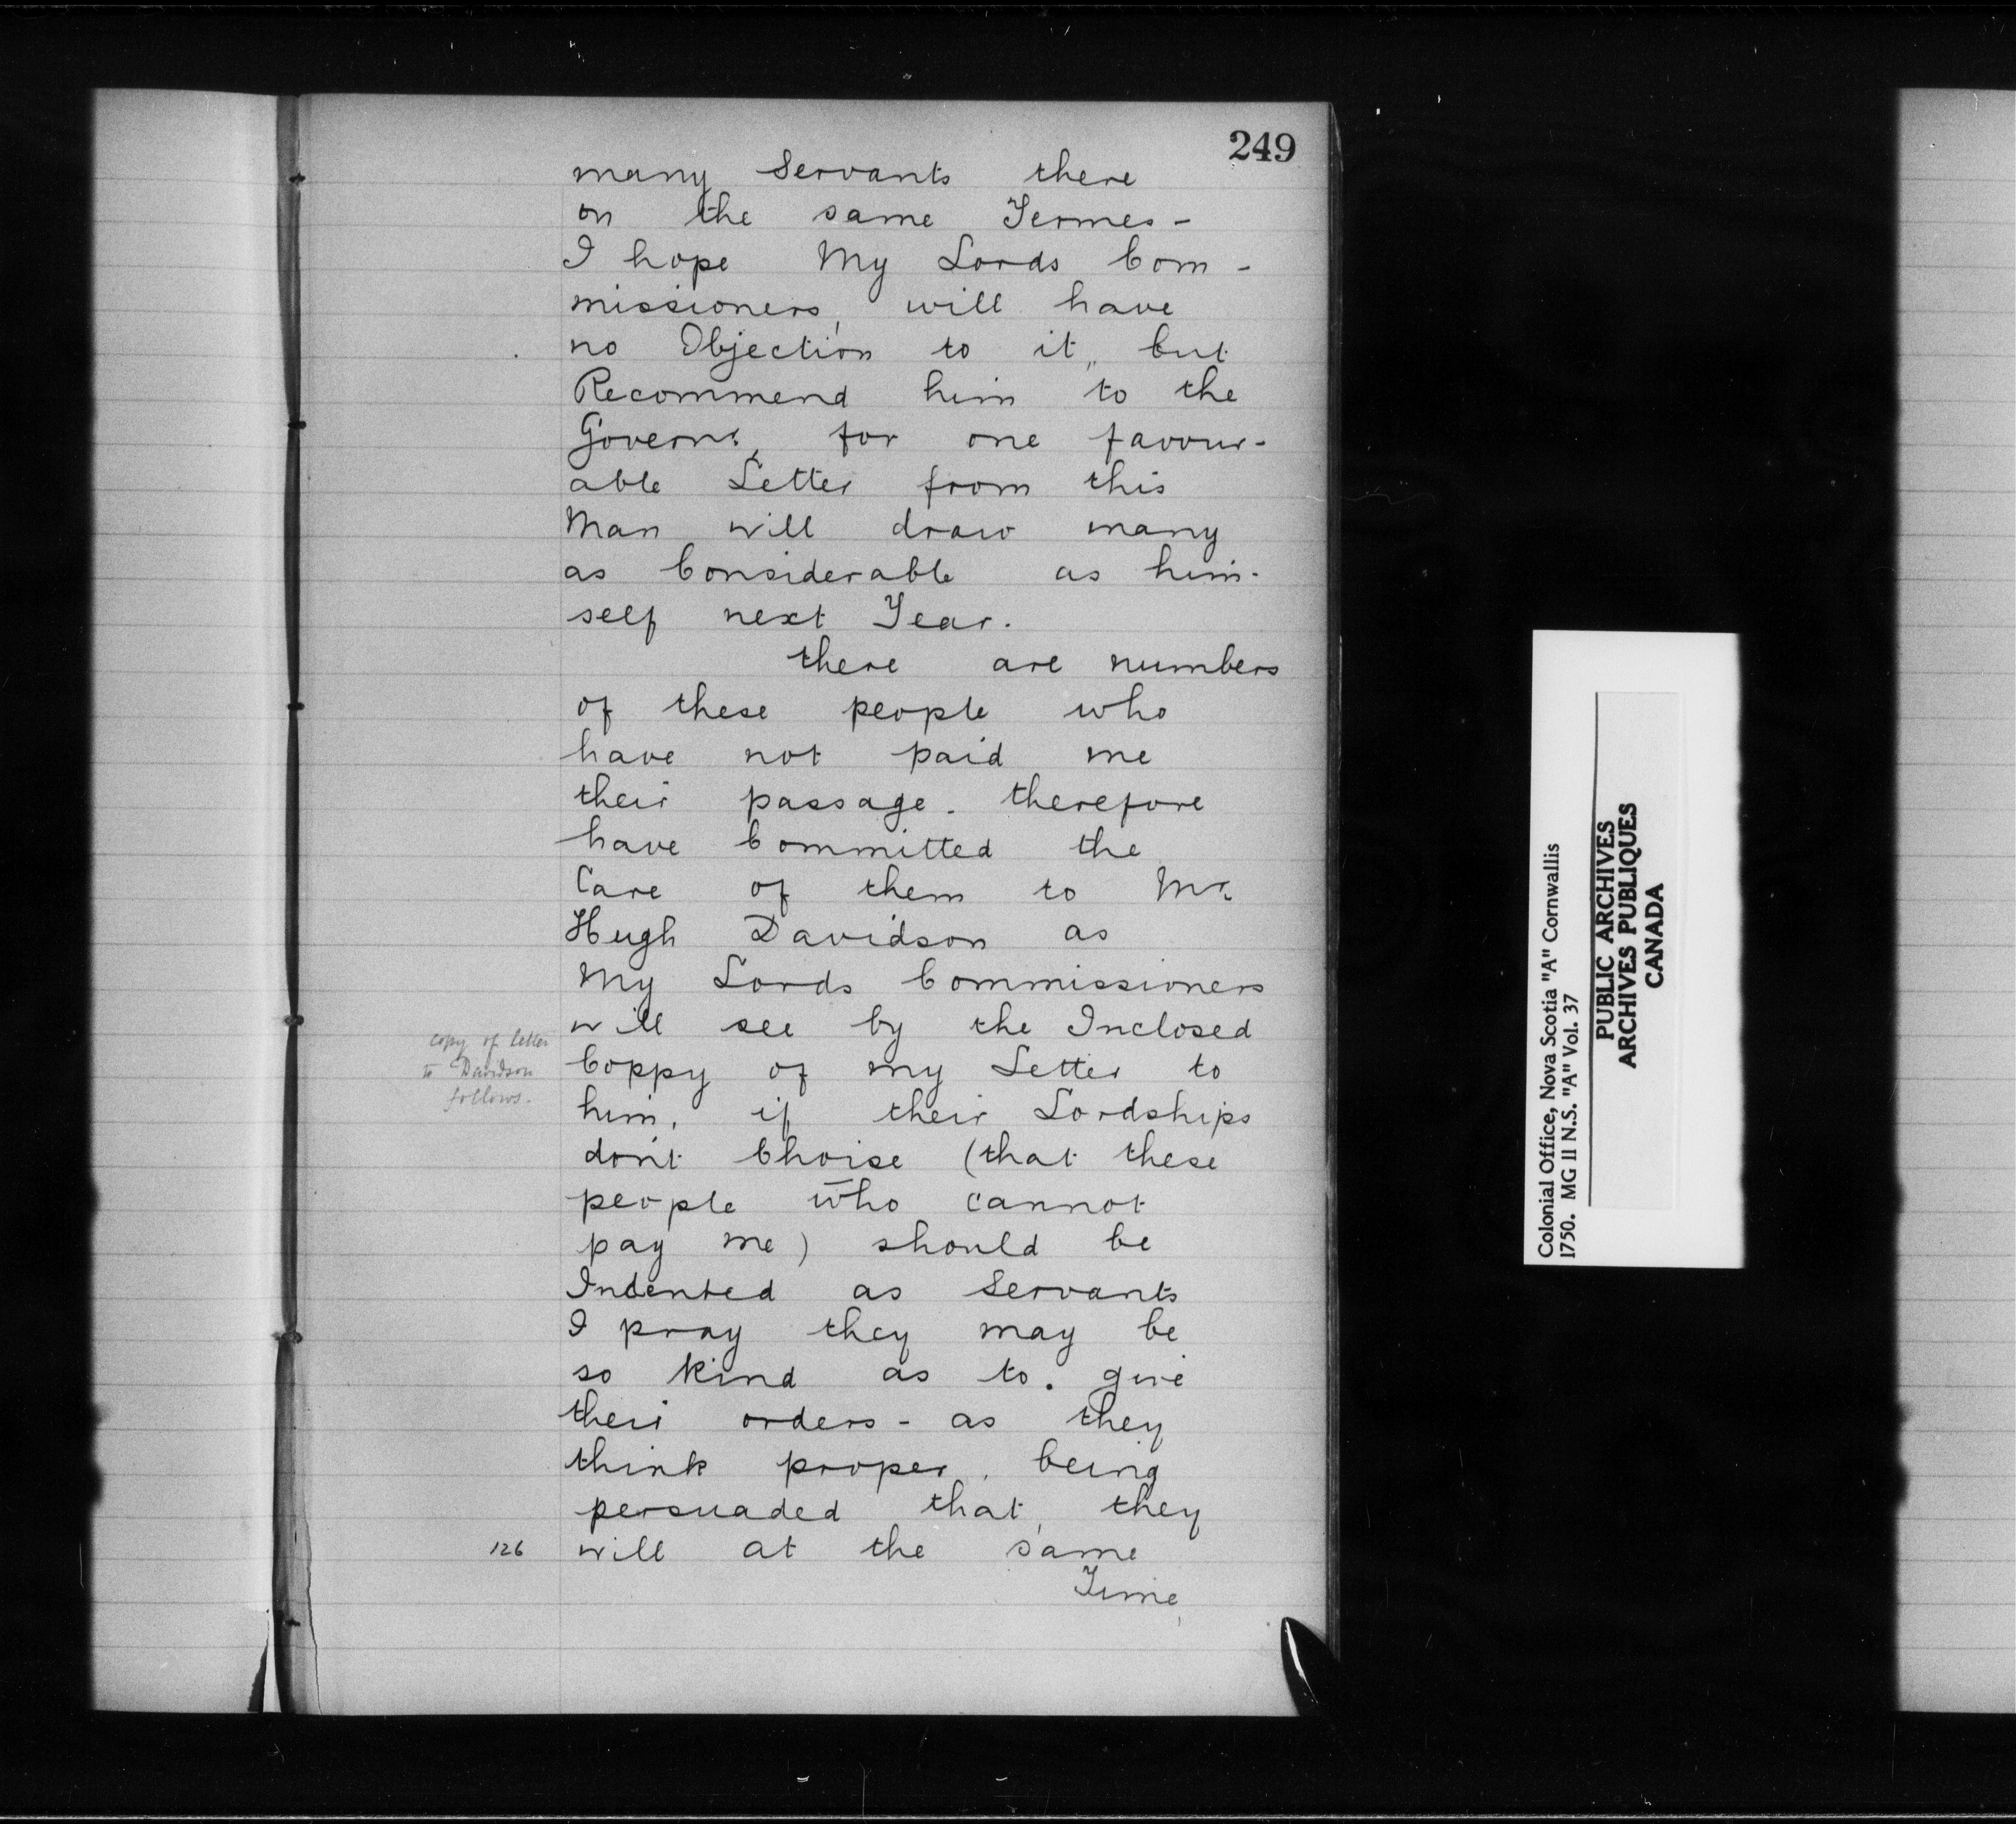 249
many Servants there
on the same Termes -
I hope My Lords Com -
missioners, will have
no Objection to it, but
Recommend him to the
Governr, for one favour-
able Letter from this
Man will draw many
as Considerable as him-
self next Year.
there are numbers
of these people who
have not paid me
their passage - therefore
have Committed the
Care of them to Mr.
Hugh Davidson as
My Lords Commissioners
will see by the Inclosed
copy of letter
to Davidson
follows.
Coppy of my Letter to
him, if their Lordships
don't Choise (that these
people who cannot
pay me) should be
Indented as Servants
I pray they may be
so kind as to. give
their orders - as they
think proper, being
persuaded that, they
126 will at the same
Time
Colonial Office, Nova Scotia "A" Cornwallis
1750. MG 11 N.S. "A" Vol. 37
PUBLIC ARCHIVES
ARCHIVES PUBLIQUES
CANADA